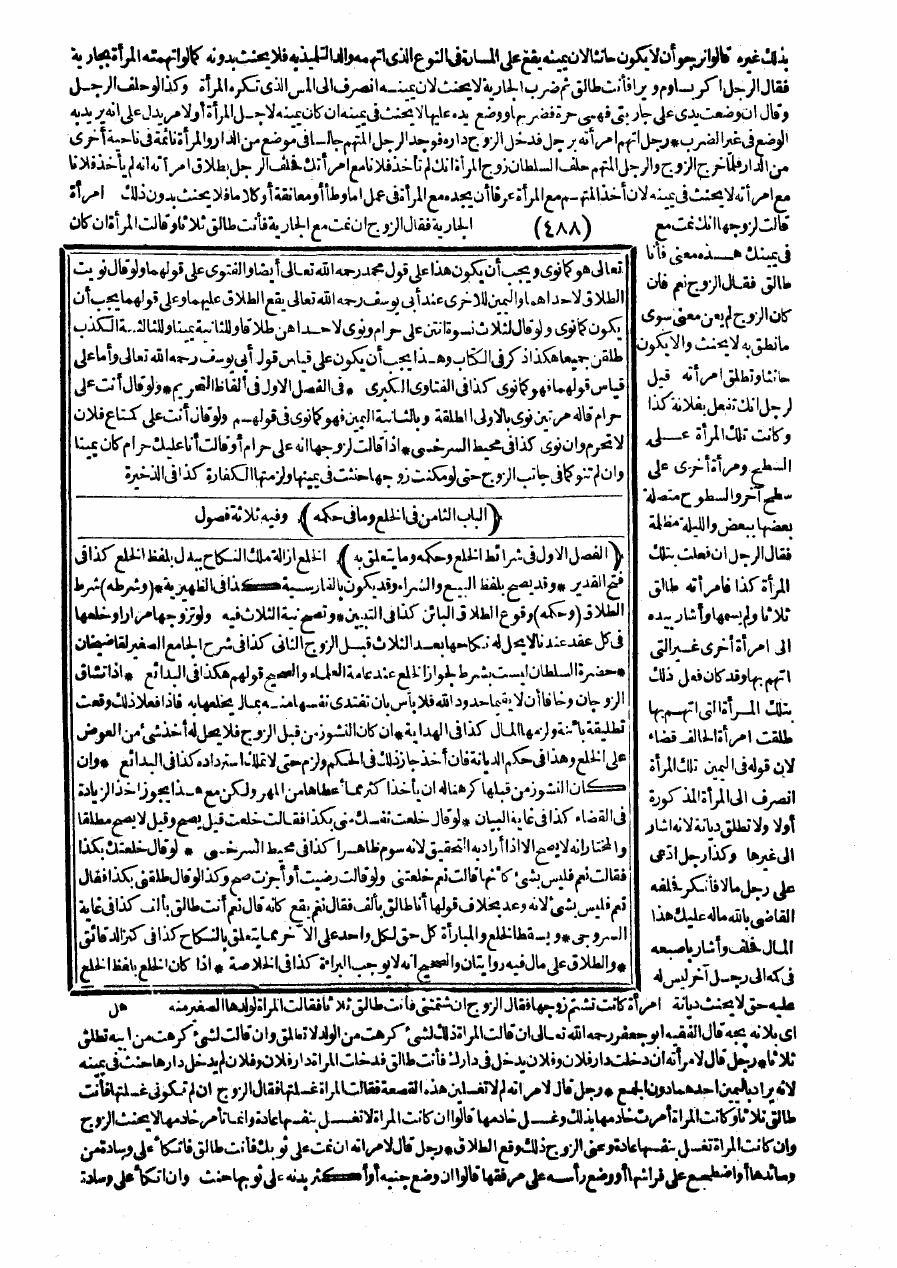 بذلك غيره قالوا نرجو أن لا يكون حانثا لان يمينه يقع على المسارة فى النوع الذى اتهمه والد التلميذ فيه فلا يحنث بدونه كما لو اتهمته المرأة بجارية
فقال الرجل اكر بساوم ويرا فأنت طالق ثم ضرب الجارية لا يحنث لان يمينه انصرف الى المس الذى تكره المرأة وكذا لو حلف الرجل
وقال ان وضعت يدى على جاريتى فهى حرة فضربها ووضع يده عليها لا يحنث فى يمينه ان كان يمينه لاجل المرأة أو لامر يدل على انه يريد به
الوضع فى غير الضرب * رجل اتهم امرأته برجل فدخل الزوج داره فوجد الرجل المتهم جالسا فى موضع من الدار والمرأة نائمة فى ناحية أخرى
من الدار فلما خرج الزوج والرجل المتهم حلف السلطان زوج المرأة انك لم تأخذ فلانا مع امرأتك فحلف الرجل بطلاق امرأته انه لم يأخذ فلانا
مع امرأته لا يحنث فى يمينه لان أخذ المتهم مع المرأة عرفا أن يجده مع المرأة فى عمل اما وطأ أو معانقة أو كلاما فلا يحنث بدون ذلك امرأة
قالت لزوجها انك نمت مع (٤٨٨) الجارية فقال الزوج ان نمت مع الجارية فأنت طالق ثلاثا وقالت المرأة ان كان
فى يمينك هذه معنى فأنا
طالق فقال الزوج نم فان
كان الزوج لم يعن معنى سوى
ما نطق به لا يحنث والا يكون
حانثا وتطلق امرأته قيل
لرجل انك تفعل بفلانة كذا
وكانت تلك المرأة على
السطح وامرأة أخرى على
سطح آخر والسطوح متصلة
بعضها ببعض والليلة مظلمة
فقال الرجل ان فعلت بتلك
المرأة كذا فامرأته طالق
ثلاثا ولم يسمها وأشار بيده
الى امرأة أخرى غير التى
اتهم بها وقد كان فعل ذلك
بتلك المرأة التى اتهم بها
طلقت امرأة الحالف قضاء
لان قوله فى اليمين تلك المرأة
انصرف الى المرأة المذكورة
أولا ولا تطلق ديانة لانه اشار
الى غيرها وكذا رجل ادعى
على رجل مالا فأنكر فحلفه
القاضى بالله ماله عليك هذا
المال فحلف وأشار باصبعه
فى كمه الى رجل آخر ليس له
تعالى هو كما نوى ويجب أن يكون هذا على قول محمد رحمه الله تعالى أيضا والفتوى على قولهما ولو قال نويت
الطلاق لاحداهما واليمين للاخرى عند أبى يوسف رحمه الله تعالى يقع الطلاق عليهما وعلى قولهما يجب أن
يكون كما نوى ولو قال لثلاث نسوة أنتن على حرام ونوى لاحداهن طلاقا وللثانية يمينا وللثالثة الكذب
طلقن جميعا هكذا ذكر فى الكتاب وهذا يجب أن يكون على قياس قول أبى يوسف رحمه الله تعالى وأما على
قياس قولهما فهو كما نوى كذا فى الفتاوى الكبرى * فى الفصل الاول فى ألفاظ التحريم * ولو قال أنت على
حرام قاله مرتين نوى بالاولى الطلقة وبالثانية اليمين فهو كما نوى فى قولهم ولو قال أنت على كمتاع فلان
لا تحرم وان نوى كذا فى محيط السرخسى * اذا قالت لزوجها انه على حرام أو قالت أنا عليك حرام كان يمينا
وان لم تنو كما فى جانب الزوج حتى لو مكنت زوجها حنثت فى يمينها ولزمتها الكفارة كذا فى الذخيرة
﴿الباب الثامن فى الخلع وما فى حكمه﴾ وفيه ثلاثة فصول
﴿الفصل الاول فى شرائط الخلع وحكمه وما يتعلق به﴾ الخلع ازالة ملك النكاح ببدل بلفظ الخلع كذا فى
فتح القدير * وقد يصح بلفظ البيع والشراء وقد يكون بالفارسية كذا فى الظهيرية * (وشرطه) شرط
الطلاق (وحكمه) وقوع الطلاق البائن كذا فى التبيين * وتصح نية الثلاث فيه ولو تزوجها مرارا وخلعها
فى كل عقد عندنا لا يحل له نكاحها بعد الثلاث قبل الزوج الثانى كذا فى شرح الجامع الصغير لقاضيخان
* حضرة السلطان ليست بشرط لجواز الخلع عند عامة العلماء والصحيح قولهم هكذا فى البدائع * اذا تشاق
الزوجان وخافا أن لا يقيما حدود الله فلا بأس بان تفتدى نفسها منه بمال يخلعها به فاذا فعلا ذلك وقعت
تطليقة بائنة ولزمها المال كذا فى الهداية * ان كان النشوز من قبل الزوج فلا يحل له أخذ شئ من العوض
على الخلع وهذا فى حكم الديانة فان أخذ جاز ذلك فى الحكم ولزم حتى لا تملك استرداده كذا فى البدائع * وان
كان النشوز من قبلها كرهنا له ان يأخذ اكثر مما أعطاها من المهر ولكن مع هذا يجوز اخذ الزيادة
فى القضاء كذا فى غاية البيان * لو قال خلعت نفسك منى بكذا فقالت خلعت قيل يصح وقيل لا يصح مطلقا
والمختار انه لا يصح الا اذا أراد به التحقيق لانه سوم ظاهرا كذا فى محيط السرخسى * لو قال خلعتك بكذا
فقالت نعم فليس بشئ كأنها قالت نعم خلعتنى ولو قالت رضيت أو أجزت صح وكذا لو قال طلقنى بكذا فقال
نعم فليس بشئ لانه وعد بخلاف قولها أنا طالق بألف فقال نعم يقع كانه قال نعم أنت طالق بألف كذا فى غاية
السروجى * ويسقط الخلع والمبارأة كل حق لكل واحد على الآخر مما يتعلق بالنكاح كذا فى كنز الدقائق
* والطلاق على مال فيه روايتان والصحيح انه لا يوجب البراءة كذا فى الخلاصة * اذا كان الخلع بلفظ الخلع
عليه حق لا يحنث ديانة امرأة كانت تشتم زوجها فقال الزوج ان شتمتنى فأنت طالق ثلاثا فقالت المرأة لولدها الصغير منه هل
اى بلانه بجه قال الفقيه ابو جعفر رحمه الله تعالى ان قالت المرأة ذلك لشئ كرهت من الولد لا تطلق وان قالت لشئ كرهت من ابيه تطلق
ثلاثا * رجل قال لامرأته ان دخلت دار فلان وفلان يدخل فى دارك فأنت طالق فدخلت المرأة دار فلان وفلان لم يدخل دارها حنث فى يمينه
لانه يراد باليمين احدهما دون الجمع * رجل قال لامرأته لم لا تغسلين هذه القصعة فقالت المرأة غسلتها فقال الزوج ان لم تكونى غسلتها فأنت
طالق ثلاثا وكانت المرأة أمرت خادمها بذلك وغسل خادمها قالوا ان كانت المرأة لا تغسل بنفسها عادة وانما تأمر خادمها لا يحنث الزوج
وان كانت المرأة تغسل بنفسها عادة وعنى الزوج ذلك وقع الطلاق * رجل قال لامرأته ان نمت على ثوبك فأنت طالق فاتكأ على وسادة من
وسائدها أو اضطجع على فراشها أو وضع رأسه على مرفقها قالوا ان وضع جنبه أو أكثر بدنه على ثوبها حنث وان اتكأ على وسادة